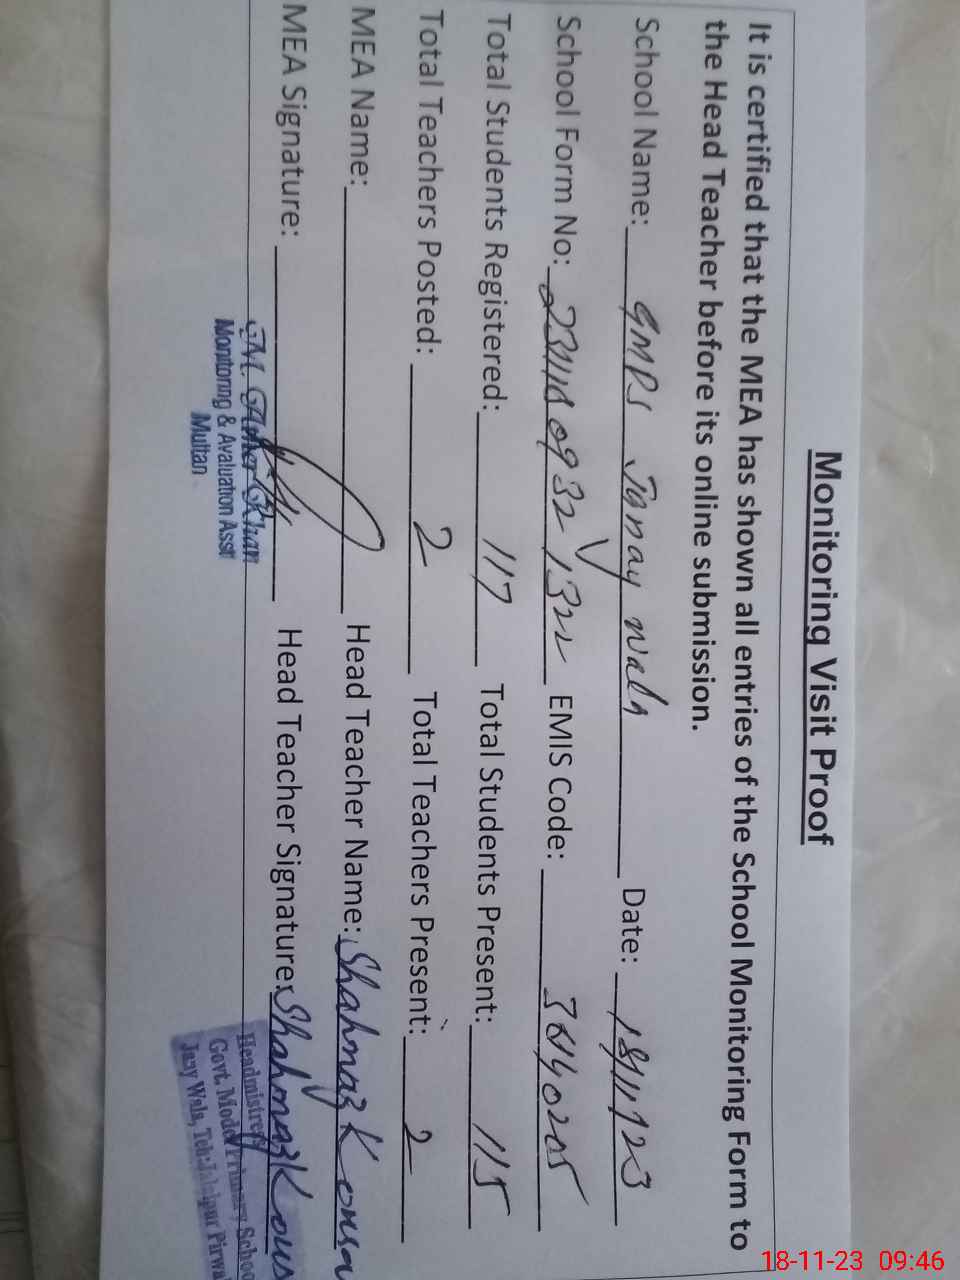 Monitoring Visit Proof
It is certified that the MEA has shown all entries of the School Monitoring Form to
the Head Teacher before its online submission.
School Name: GMPS Janay wala Date: 18/11/23
School Form No: EMIS Code: 36140205
Total Students Registered: 117 Total Students Present: 115
Total Teachers Posted: 2 Total Teachers Present: 2
MEA Name: Head Teacher Name: Shahnaz Kousar
MEA Signature: Head Teacher Signature: Shahnaz Kous
Khan
Monitoring & Avaluation Asstt
Multan
Headmistress
Govt. Model Primary School
Jany Wala, Teh: Jalalpur Pirwa
18-11-23 09:46